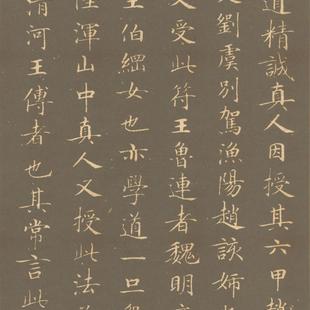 道精誠真人因授其六甲趙
劉虞別駕漁陽趙該姊
又受此符王魯連者魏明
王伯綱女也亦學道一旦
陸渾山中真人又授此法
清河王傅者也其常言此